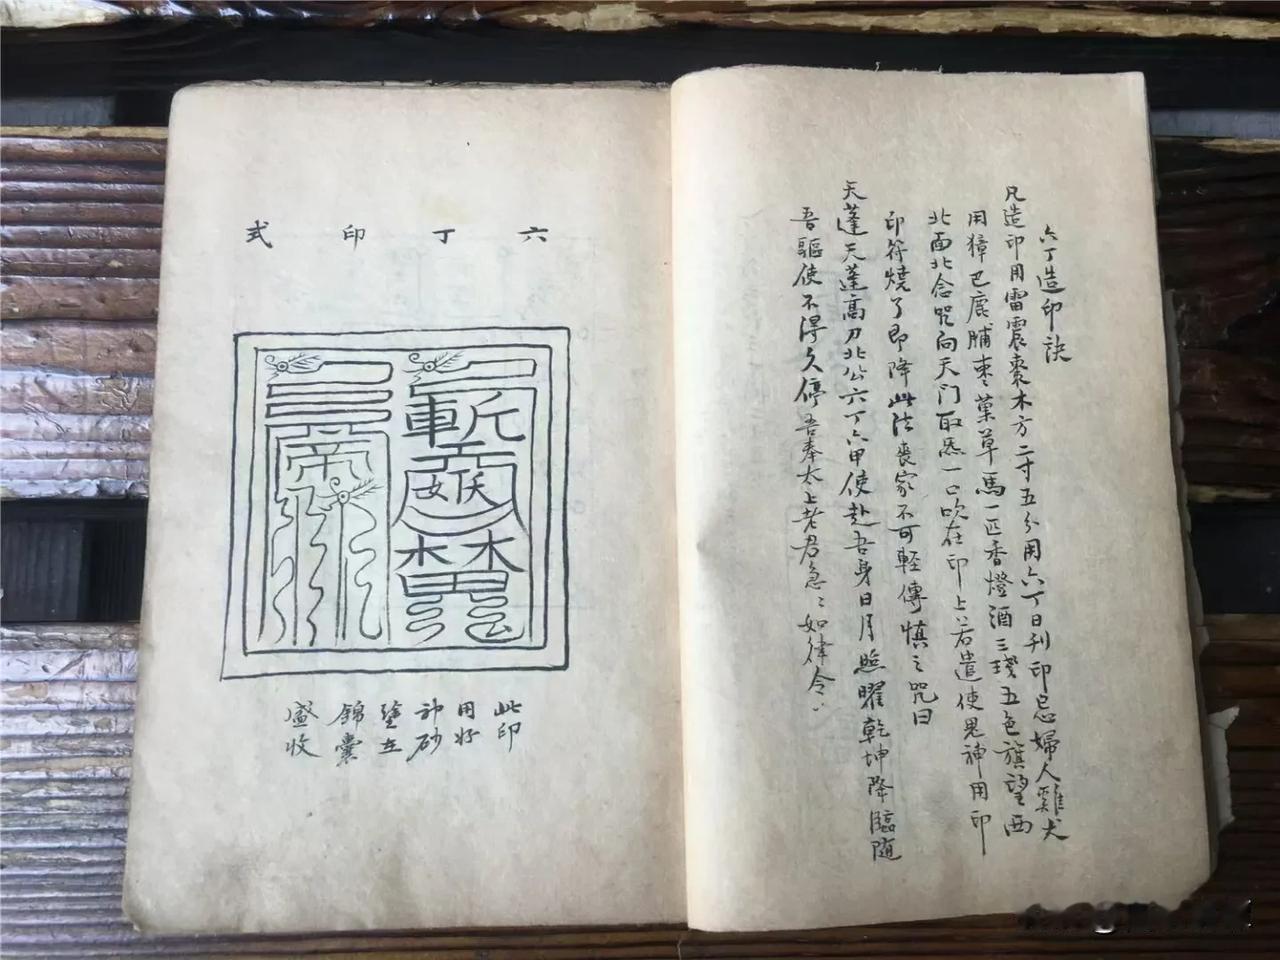 六丁造印訣
凡造印用雷震棗木方二寸五分用六丁日刊印忌婦人雞犬
用獐巴鹿脯枣菓草馬一匹香燈酒三琖五色旗望西
北面北念咒向天门取炁一口吹在印上若遣使鬼神用印
印符燒了即降此法丧家不可輕傳慎之咒曰
天蓬天蓬高刀北公六丁六甲使赴吾身日月照曜乾坤降臨随
吾驅使不得久停吾奉太上老君急〻如律令〻
六丁印式
斬妖
帝
此印
用好
砂
塗在
錦囊
盛收